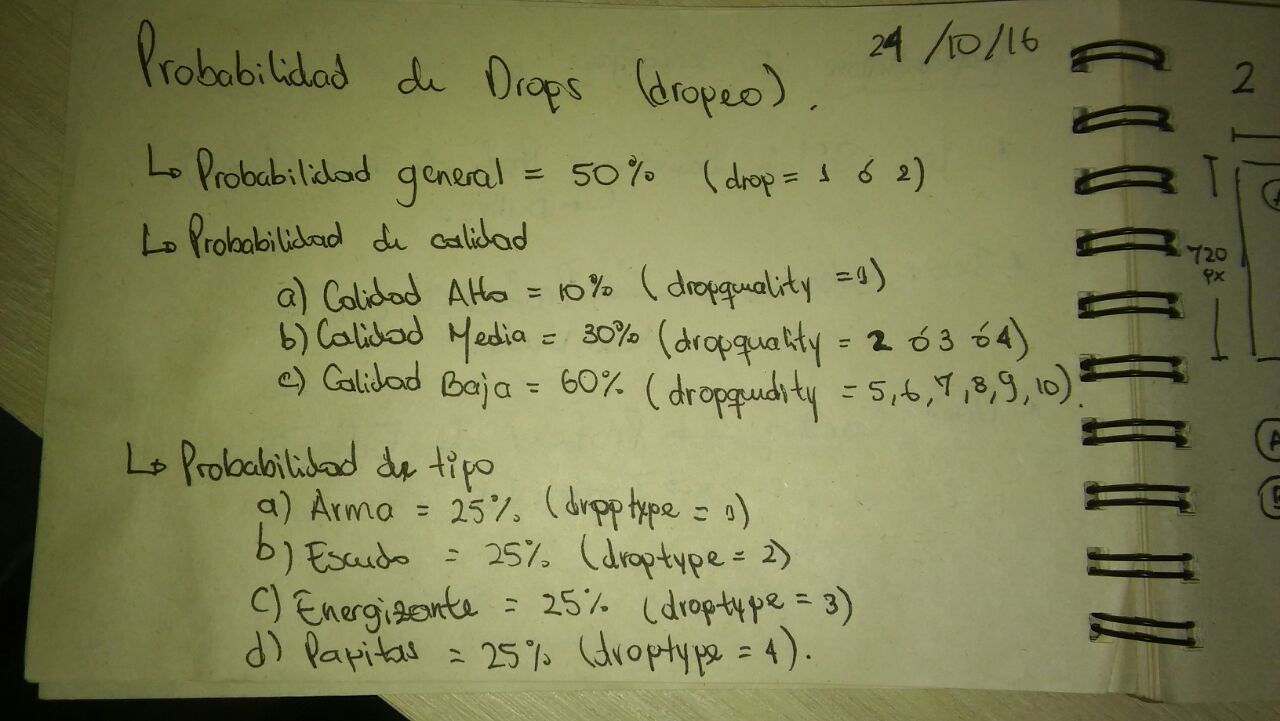 24/10/16
Probabilidad de Drops (dropeo).
↳ Probabilidad general = 50% (drop = 1 ó 2)
↳ Probabilidad de calidad
a) Calidad Alta = 10% (dropquality = 1)
b) Calidad Media = 30% (dropquality = 2 ó 3 ó 4)
c) Calidad Baja = 60% (dropqudity = 5,6,7,8,9,10).
↳ Probabilidad de tipo
a) Arma = 25% (dropptype = 1)
b) Escudo = 25% (droptype = 2)
c) Energizante = 25% (droptype = 3)
d) Papitas = 25% (droptype = 4).
2
720
px
A